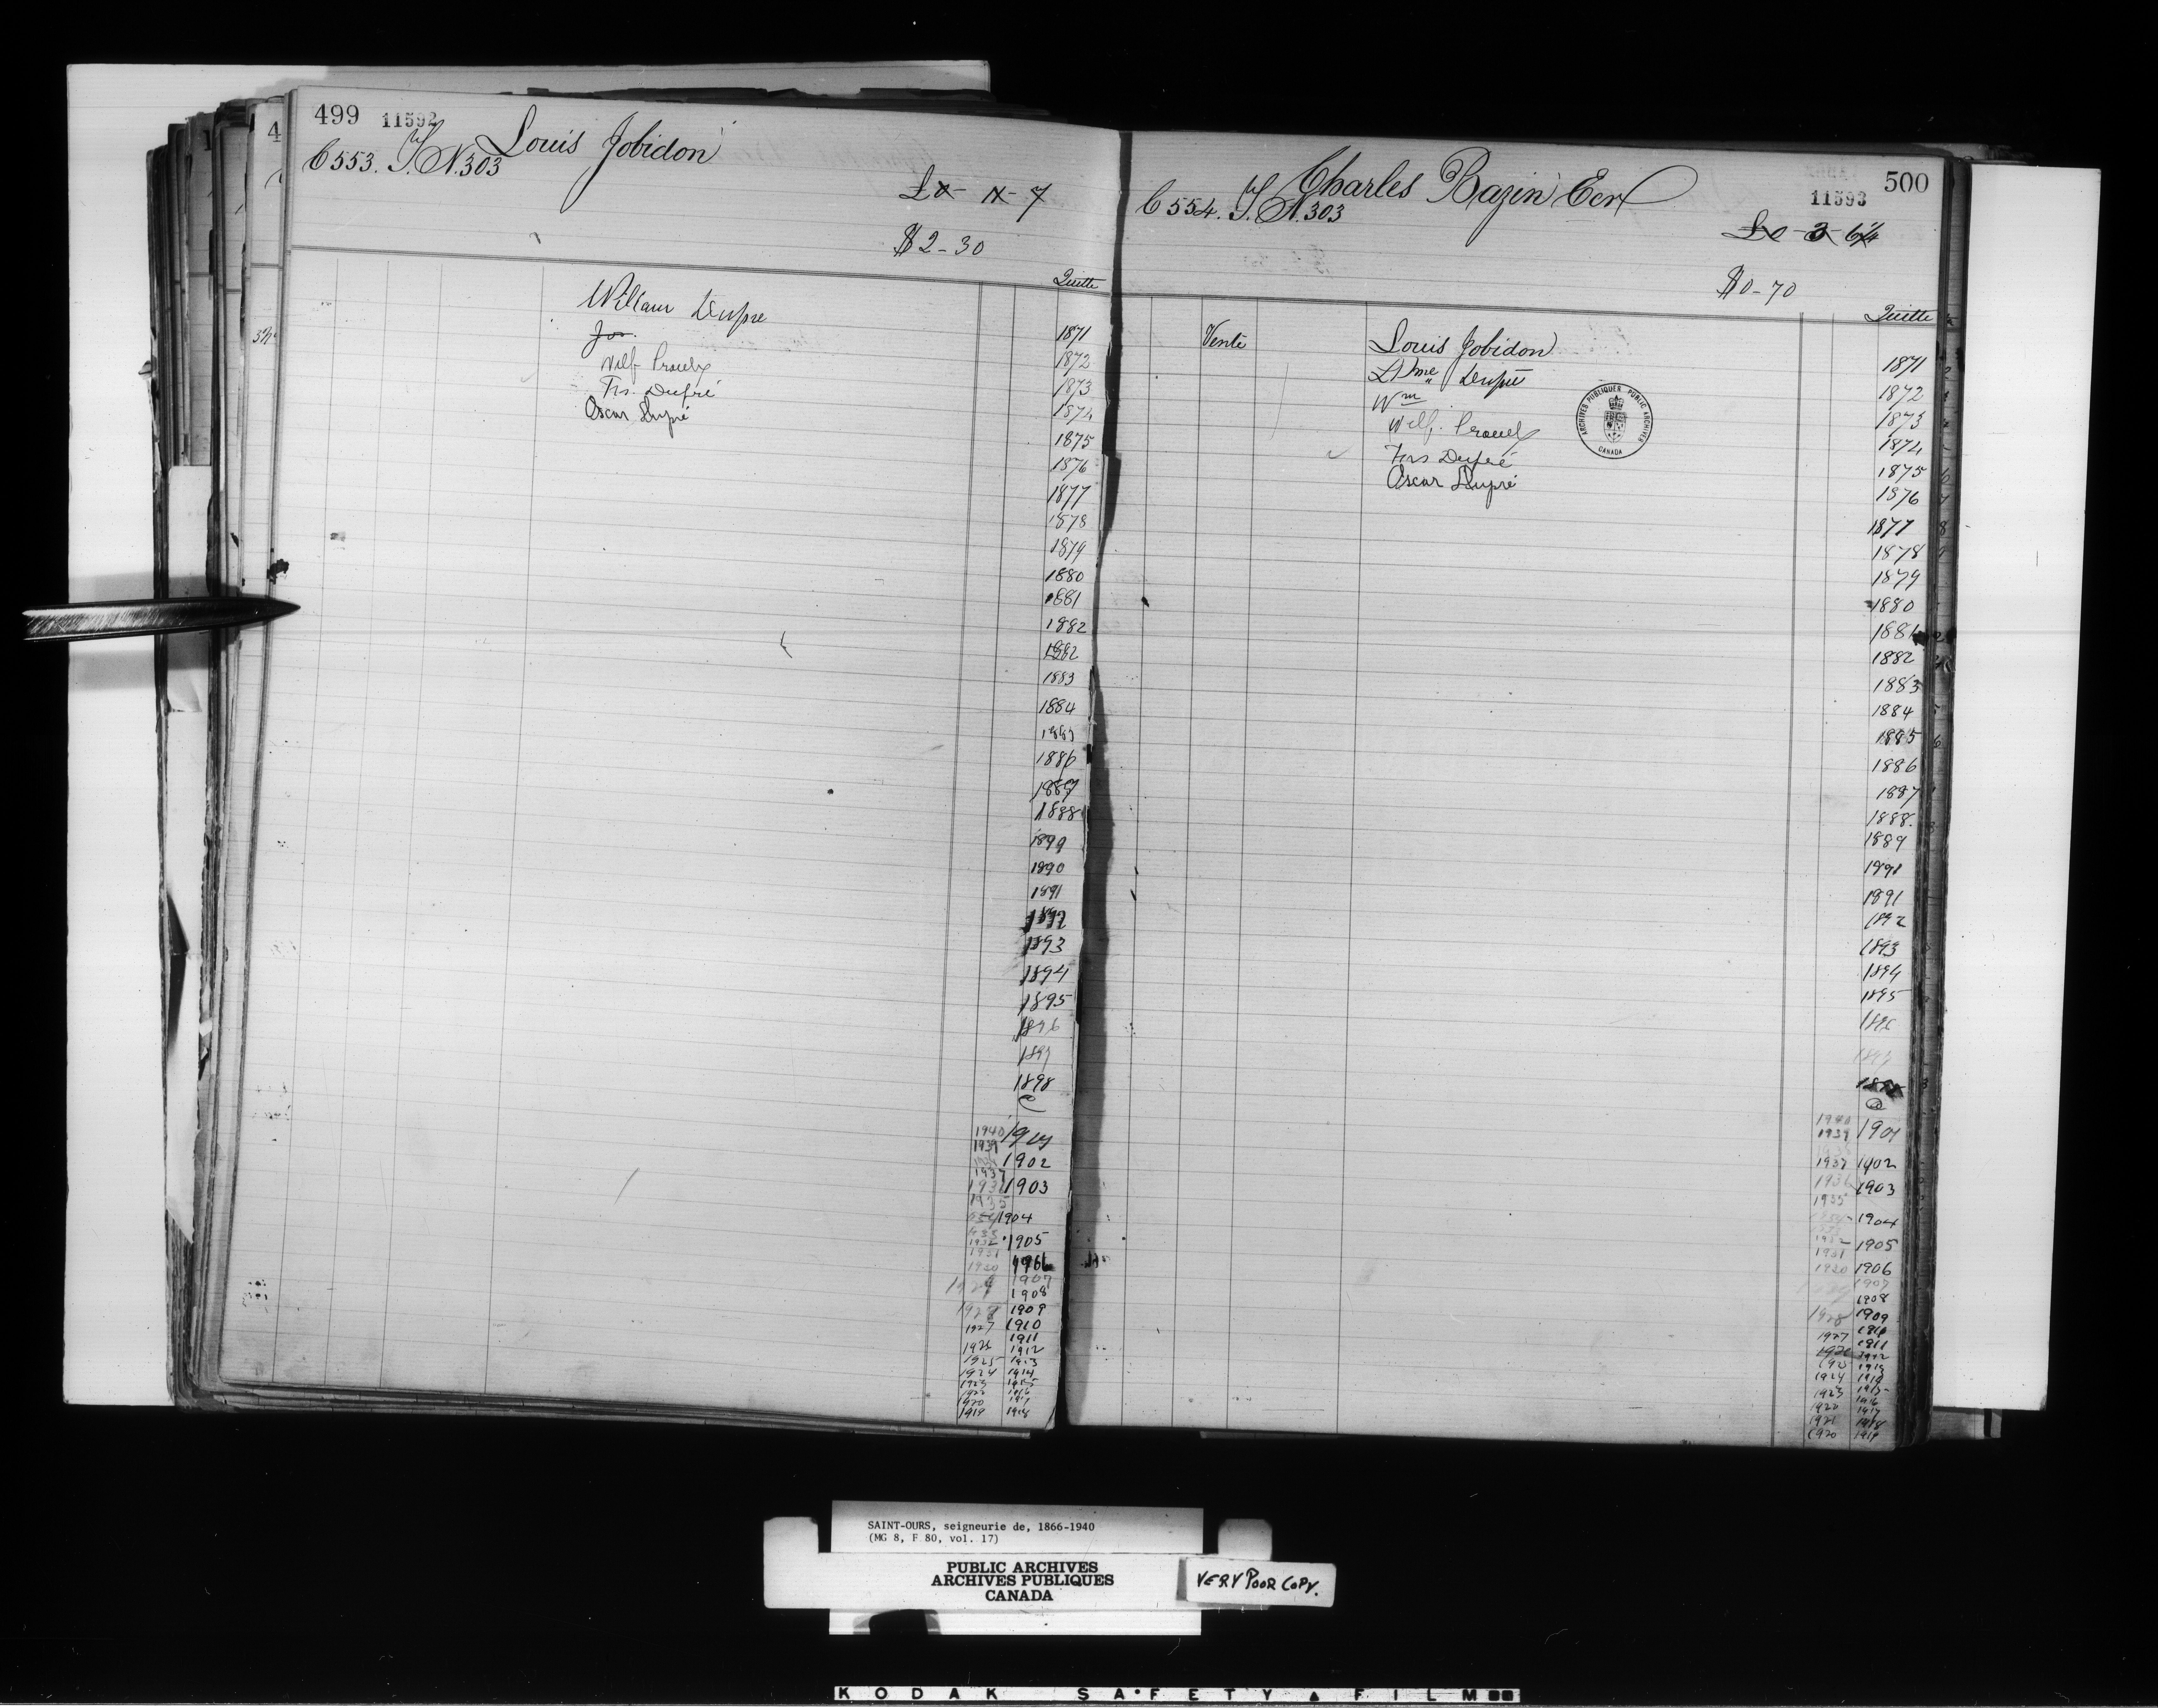 499 11592
Louis Jobidon
C 553. T. N. 303
$2-30
Quitte
William Dupré
Jos.
Wilf Proulx
Frs. Dupré
Oscar Dupré
1871
1872
1873
1874
1875
1876
1877
1878
1879
1880
1881
1882
1882
1883
1884
1885
1886
1887
1888
1889
1890
1891
1892
1893
1894
1895
1896
1897
1898
1940
1939 1902
1937
1903
1935
1904
1932 1905
1931
1930 1906
1907
1908
1928 1909
1927 1910
1911
1926 1912
1925 1913
1924 1914
1923 1915
1922 1916
1920 1917
1919 1918
500
11593
Charles Bazin Ecr
C 554. T. N. 303
£0-3-6¼
$0-70
Quitte
Vente
Louis Jobidon
Wm
Wilf. Proulx
Frs Dupré
Oscar Dupré
ARCHIVES PUBLIQUES PUBLIC ARCHIVES
CANADA
1871
1872
1873
1874
1875
1876
1877
1878
1879
1880
1881
1882
1883
1884
1885
1886
1887
1888.
1889
1890
1891
1892
1893
1894
1895
1896
1897
1940
1939 1901
1937 1902
1936 1903
1935
1904
1932
1931 1905
1930 1906
1907
1908
1928 1909
1910
1927 1911
1926 1912
1925 1913
1924 1914
1923 1915
1916
1922 1917
1921 1918
1920 1919
SAINT-OURS, seigneurie de, 1866-1940
(MG 8, F 80, vol. 17)
PUBLIC ARCHIVES
ARCHIVES PUBLIQUES
CANADA
VERY POOR COPY.
KODAK SAFETY FILM